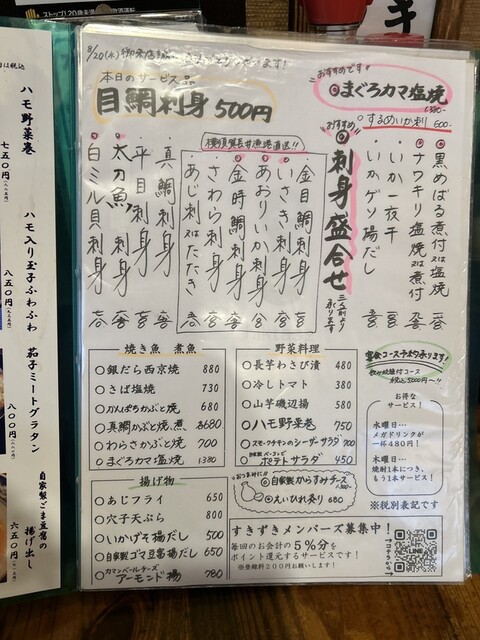 ハモ野菜巻
七五〇円
ハモ入り玉子ふわふわ
八五〇円
茄子ミートグラタン
八〇〇円
自家製ごま豆腐の
揚げ出し
六五〇円
8/20(水)
本日のサービス品
目鯛刺身 500円
おすすめです
まぐろカマ塩焼
1380-
するめいか刺 600-
黒めばる煮付又は塩焼
ナワキリ塩焼又は煮付
いか一夜干
いかゲソ湯だし
おすすめ
刺身盛合せ
二人前より承ります
横須賀長井漁港直送!!
金目鯛刺身
いさき刺身
あおりいか刺身
金時鯛刺身
さわら刺身
あじ刺身又はたたき
真鯛刺身
平目刺身
太刀魚刺身
白ミル貝刺身
焼き魚 煮魚
○銀だら西京焼 880
○さば塩焼 730
○かんぱちかぶと焼 680
○真鯛かぶと焼、煮 各680
○わらさかぶと焼 700
○まぐろカマ塩焼 1380
野菜料理
○長芋わさび漬 480
○冷しトマト 380
○山芋磯辺揚 580
○ハモ野菜巻 750
○スモークサーモンのシーザーサラダ 700
○自家製ベーコンとポテトサラダ 450
おつまみに
○自家製からすみチーズ
○えいひれ炙り 680
揚げ物
○あじフライ 650
○穴子天ぷら 800
○いかげそ揚だし 500
○自家製ゴマ豆腐揚だし 650
○カマンベールチーズアーモンド揚 780
宴会コース予約承ります!
税込5,000円〜!!
お得な
サービス!
水曜日…
メガドリンクが
一杯480円!
木曜日…
焼酎1本につき、
もう1本サービス!
※税別表記です
すきずきメンバーズ募集中!
毎回のお会計の5%分を
ポイント還元するサービスです!
※登録料200円お願いします!
LINE